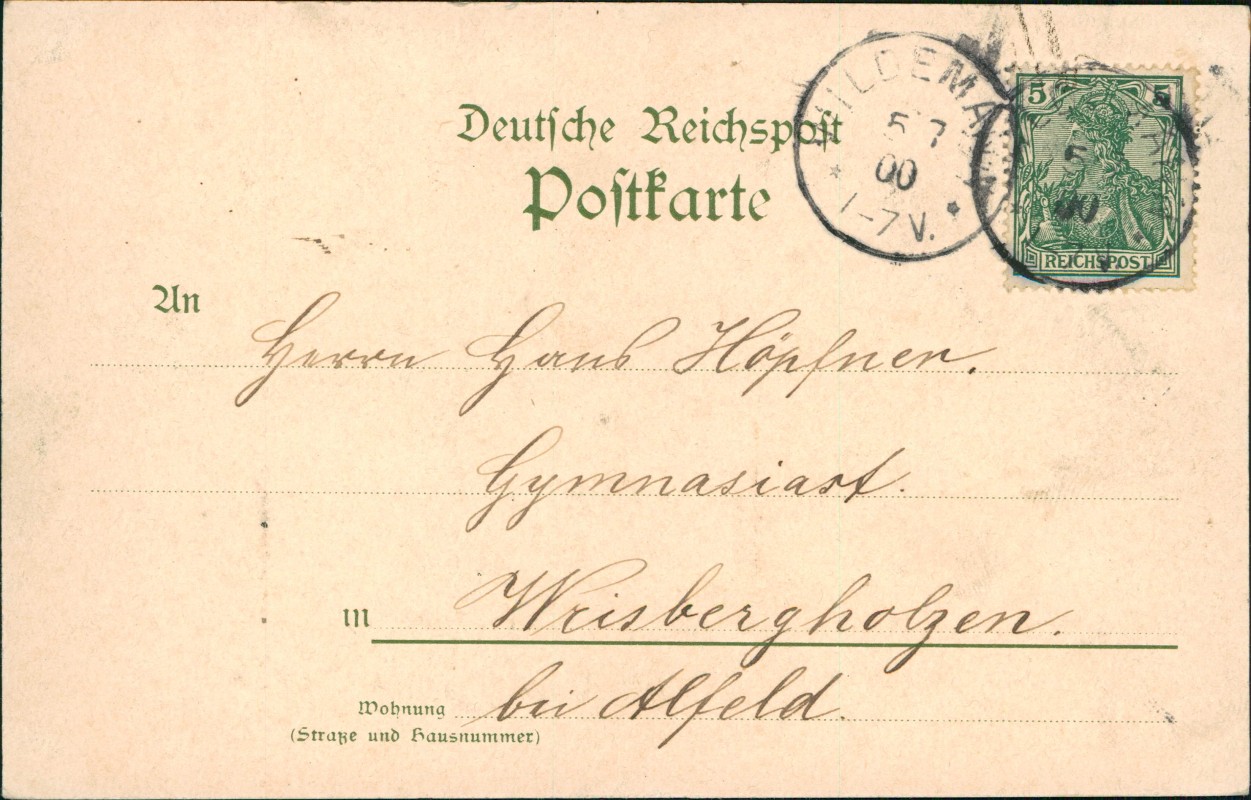 Deutsche Reichspost
Postkarte
WILDEMANN
5 7
00
1-7 V.
5 5
5
00
REICHSPOST
An
Herrn Hans Höpfner.
Gymnasiast.
in Wrisbergholzen.
Wohnung bei Alfeld.
(Straße und Hausnummer)